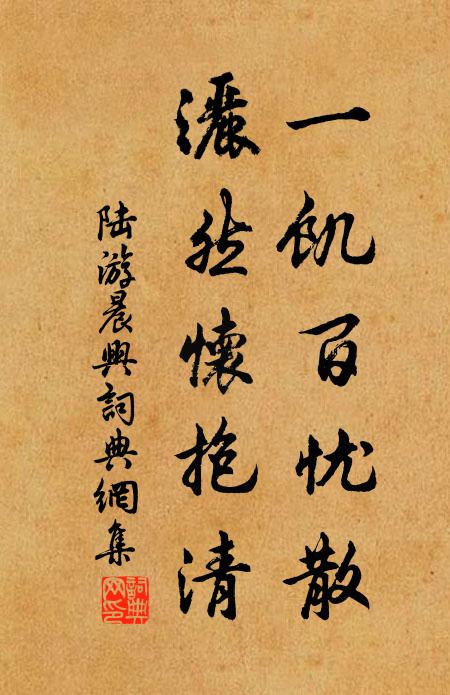 一飢百忧散
灑然懷抱清
陆游晨興詞典網集
詞典网印